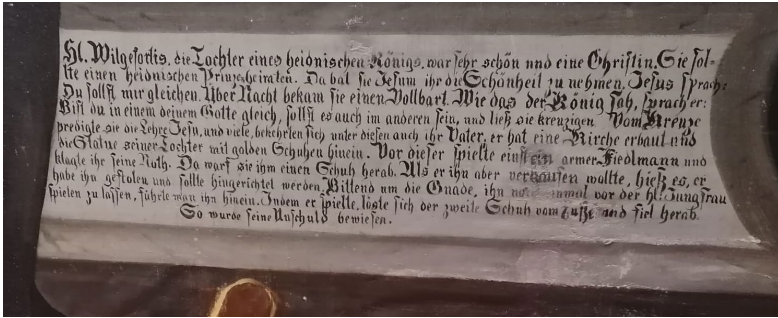 Hl. Wilgefortis, die Tochter eines heidnischen Königs, war sehr schön und eine Christin. Sie sol-
lte einen heidnischen Prinzen heiraten. Da bat sie Jesum ihr die Schönheit zu nehmen. Jesus sprach:
Du sollst mir gleichen. Über Nacht bekam sie einen Vollbart. Wie das der König sah, sprach er:
Bist du in einem deinem Gotte gleich, sollst es auch im anderen sein, und ließ sie kreuzigen. Vom Kreuze
predigte sie die Lehre Jesu, und viele bekehrten sich unter diesen auch ihr Vater, er hat eine Kirche erbaut und
die Statue seiner Tochter mit golden Schuhen hinein. Vor dieser spielte einst ein armer Fiedlmann und
klagte ihr seine Noth. Da warf sie ihm einen Schuh herab. Als er ihn aber verkaufen wollte, hieß es, er
habe ihn gestolen und sollte hingerichtet werden. Bittend um die Gnade, ihn noch einmal vor der hl. Jungfrau
spielen zu lassen, führte man ihn hinein. Indem er spielte, löste sich der zweite Schuh vom Fuße und fiel herab.
So wurde seine Unschuld bewiesen.